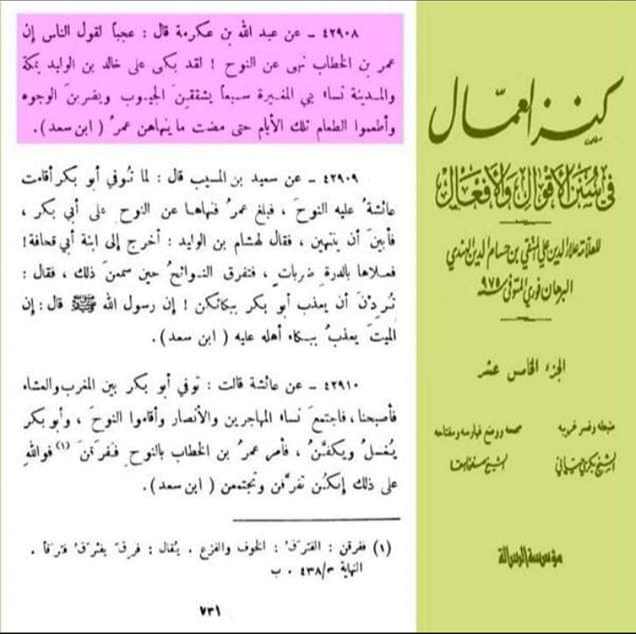 ٤٢٩٠٨ ـ عن عبد الله بن عكرمة قال : عجباً لقول الناس إن
عمر بن الخطاب نهى عن النوح ! لقد بكى على خالد بن الوليد بمكة
والمدينة نساء بني المغيرة سبعاً يشققنَ الجيوب ويضربنَ الوجوه
وأطعموا الطعام تلك الأيام حتى مضت ما ينهاهن عمرُ ( ابن سعد ).
٤٢٩٠٩ ـ عن سعيد بن المسيب قال : لما تُوفي أبو بكر أقامت
عائشةُ عليه النوحَ ، فبلغ عمرُ فنهاها عن النوح على أبي بكر ،
فأبينَ أن ينتهين ، فقال لهشام بن الوليد : أخرج إلى ابنة أبي قحافة !
فعلاها بالدرةِ ضرباتٍ ، فتفرق النوائحُ حين سمعنَ ذلك ، فقال :
تُرِدْنَ أن يعذب أبو بكر ببكائكن ! إن رسول الله ﷺ قال : إن
الميتَ يعذبُ ببكاء أهله عليه ( ابن سعد ).
٤٢٩١٠ ـ عن عائشة قالت : توفي أبو بكر بين المغرب والعشاء
فأصبحنا ، فاجتمعَ نساء المهاجرين والأنصار وأقاموا النوحَ ، وأبو بكر
يُغسلُ ويكفَّنُ ، فأمر عمرُ بن الخطاب بالنوحِ ففرقنَ (١) فواللهِ
على ذلك إنكُنَّ تفرَّقن وتجتمعن ( ابن سعد ).
(١) ففرقن : الفَرَقُ : الخوف والفزع . يُقال : فرِقَ يَفْرَقُ فَرَقاً .
النهاية ٤٣٨/٣ . ب
٧٣١
كنز العمال
في سنن الأقوال والأفعال
للعلامة علاء الدين علي المتقي بن حسام الدين الهندي
البرهان فوري المتوفى ٩٧٥
الجزء الخامس عشر
ضبطه وفسر غريبه
الشيخ بكري حياني
صححه ووضع فهارسه ومفتاحه
الشيخ صفوة السقا
مؤسسة الرسالة